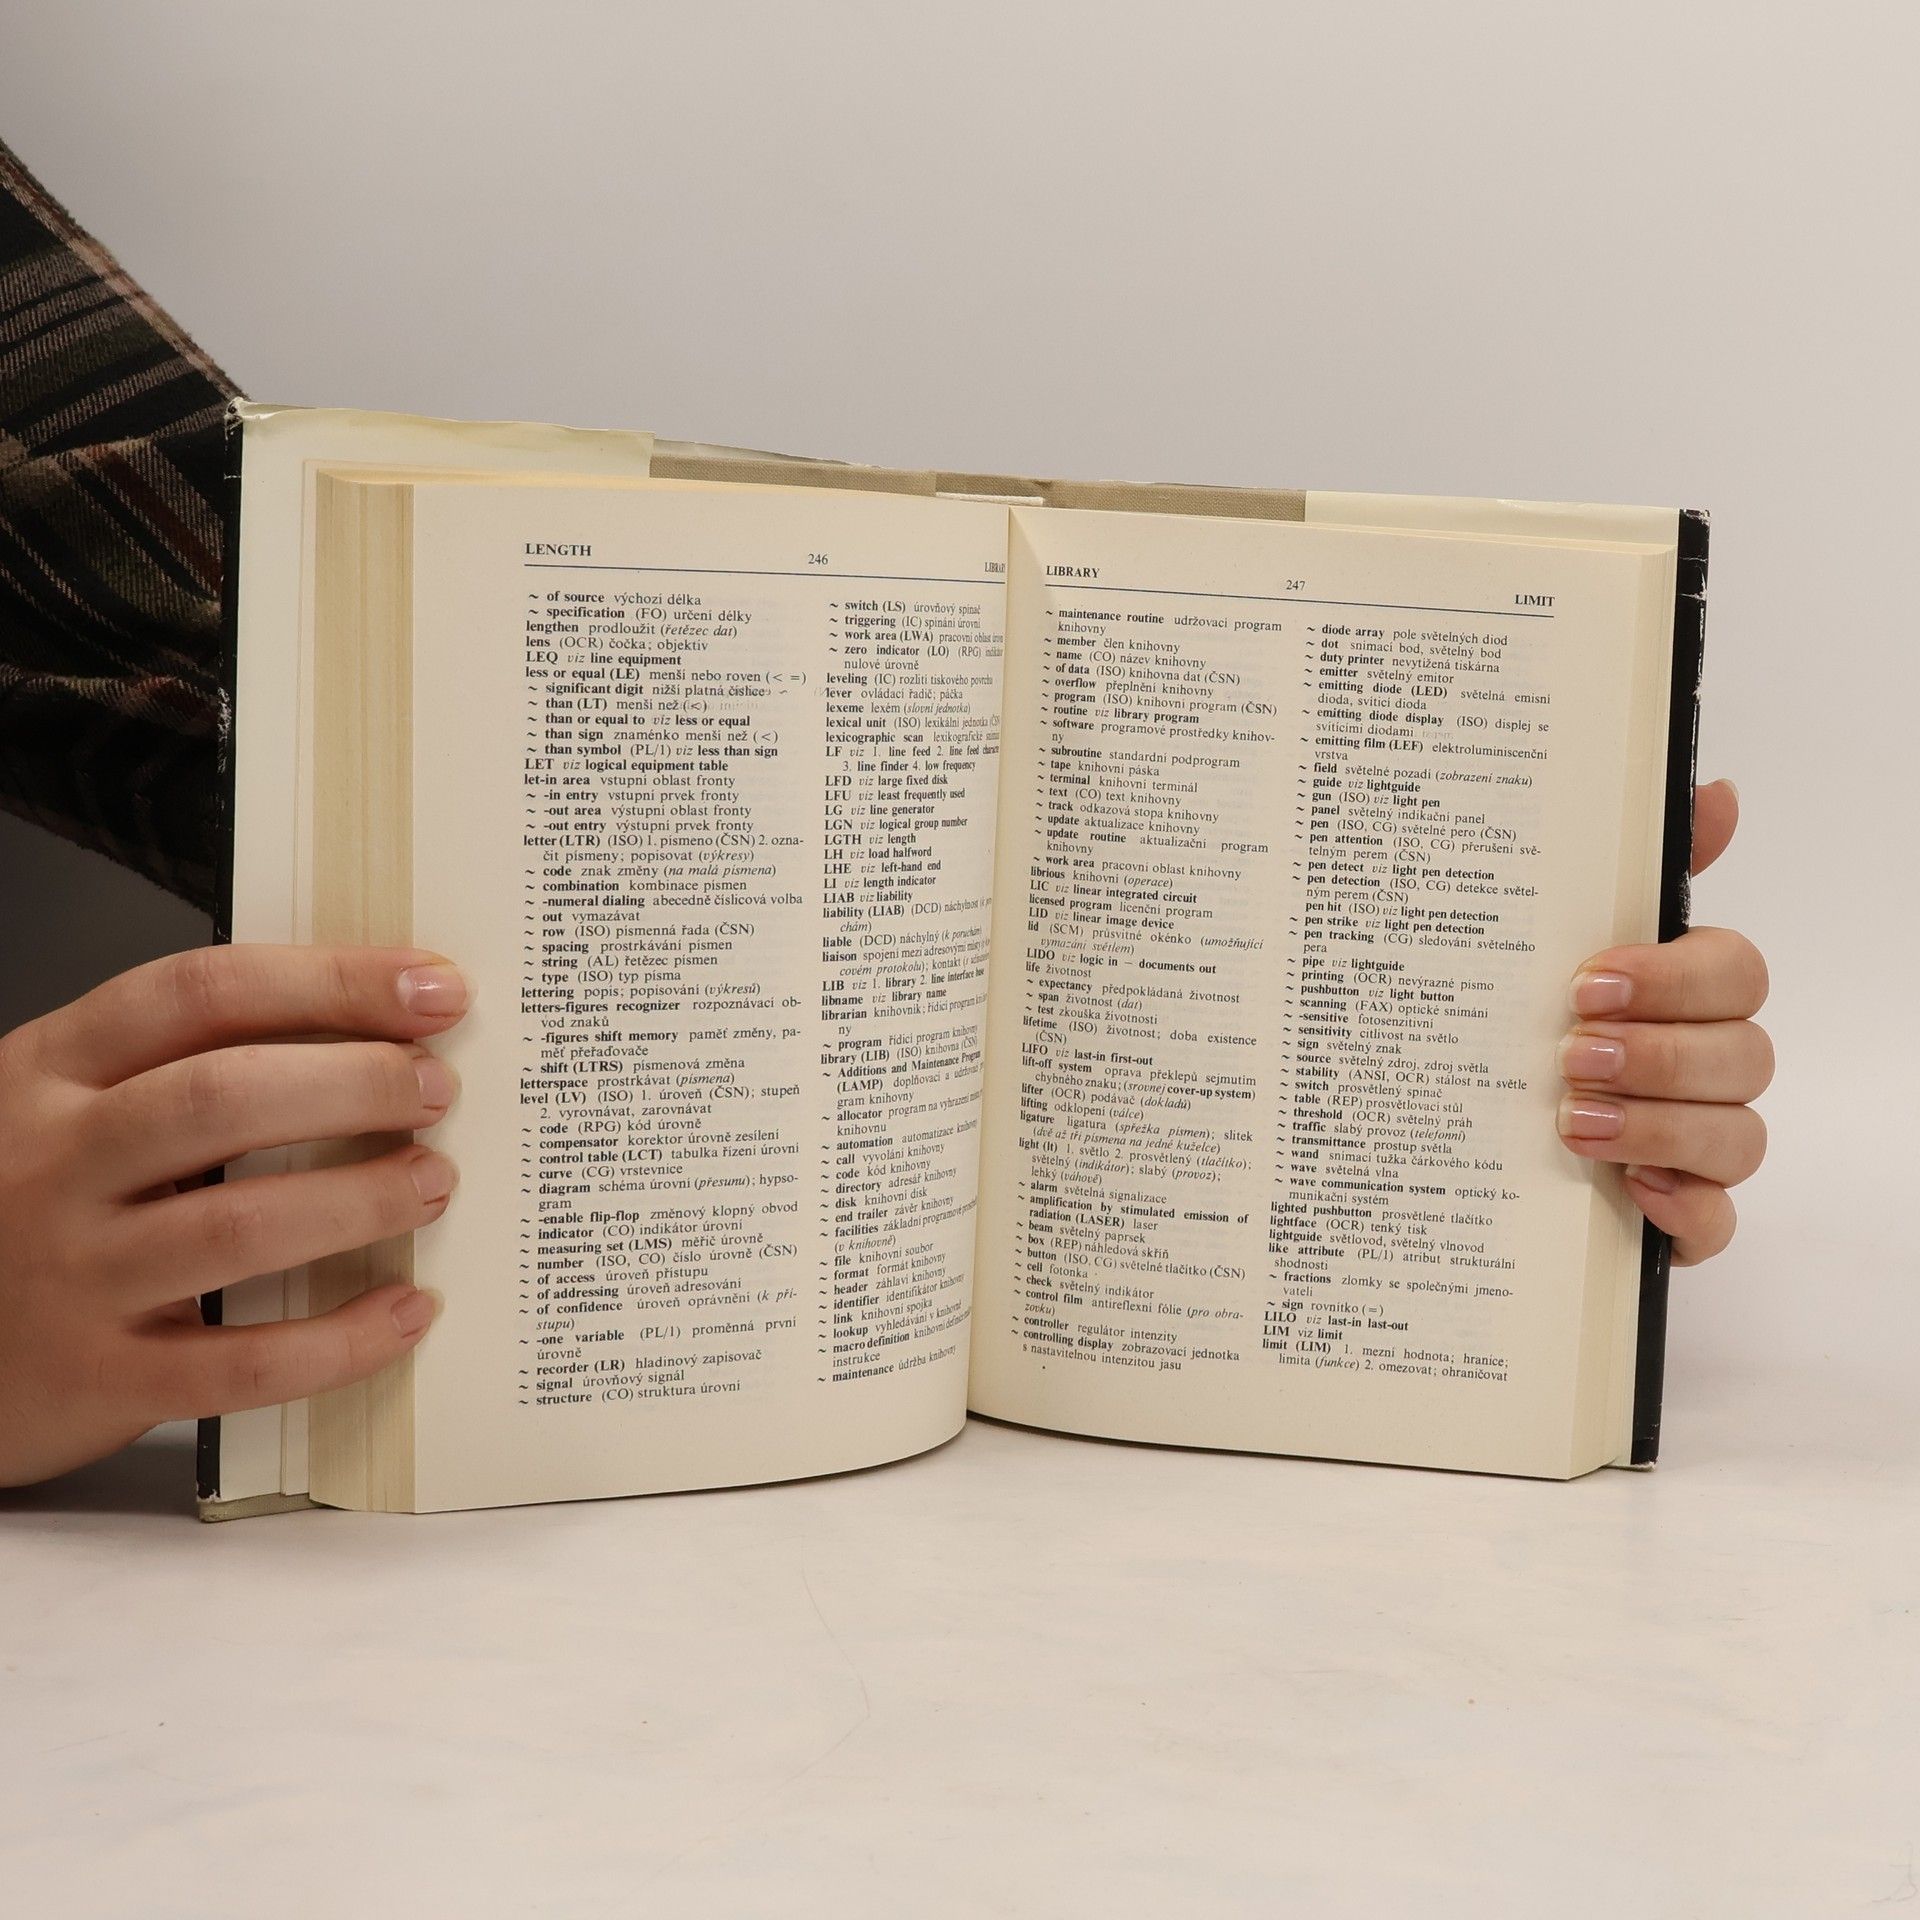 LENGTH
246
~ of source výchozí délka
~ specification (FO) určení délky
lengthen prodloužit (řetězec dat)
lens (OCR) čočka; objektiv
LEQ viz line equipment
less or equal (LE) menší nebo roven (< =)
~ significant digit nižší platná číslice
~ than (LT) menší než (<)
~ than or equal to viz less or equal
~ than sign znaménko menší než (<)
~ than symbol (PL/1) viz less than sign
LET viz logical equipment table
let-in area vstupní oblast fronty
~ -in entry vstupní prvek fronty
~ -out area výstupní oblast fronty
~ -out entry výstupní prvek fronty
letter (LTR) (ISO) 1. písmeno (ČSN) 2. ozna-
čit písmeny; popisovat (výkresy)
~ code znak změny (na malá písmena)
~ combination kombinace písmen
~ -numeral dialing abecedně číslicová volba
~ out vymazávat
~ row (ISO) písmenná řada (ČSN)
~ spacing prostrkávání písmen
~ string (AL) řetězec písmen
~ type (ISO) typ písma
lettering popis; popisování (výkresů)
letters-figures recognizer rozpoznávací ob-
vod znaků
~ -figures shift memory paměť změny, pa-
měť přeřaďovače
~ shift (LTRS) písmenová změna
letterspace prostrkávat (písmena)
level (LV) (ISO) 1. úroveň (ČSN); stupeň
2. vyrovnávat, zarovnávat
~ code (RPG) kód úrovně
~ compensator korektor úrovně zesílení
~ control table (LCT) tabulka řízení úrovní
~ curve (CG) vrstevnice
~ diagram schéma úrovní (přesunu); hypso-
gram
~ -enable flip-flop změnový klopný obvod
~ indicator (CO) indikátor úrovní
~ measuring set (LMS) měřič úrovně
~ number (ISO, CO) číslo úrovně (ČSN)
~ of access úroveň přístupu
~ of addressing úroveň adresování
~ of confidence úroveň oprávnění (k pří-
stupu)
~ -one variable (PL/1) proměnná první
úrovně
~ recorder (LR) hladinový zapisovač
~ signal úrovňový signál
~ structure (CO) struktura úrovní
~ switch (LS) úrovňový spínač
~ triggering (IC) spínání úrovní
~ work area (LWA) pracovní oblast
~ zero indicator (LO) (RPG)
nulové úrovně
leveling (IC) rozlití tiskového povrchu
lever ovládací řadič; páčka
lexeme lexém (slovní jednotka)
lexical unit (ISO) lexikální jednotka
lexicographic scan lexikografické
LF viz 1. line feed 2. line feed
3. line finder 4. low frequency
LFD viz large fixed disk
LFU viz least frequently used
LG viz line generator
LGN viz logical group number
LGTH viz length
LH viz load halfword
LHE viz left-hand end
LI viz length indicator
LIAB viz liability
liability (LIAB) (DCD) náchylnost
chám)
liable (DCD) náchylný (k poruchám)
liaison spojení mezi adresovými místy
covém protokolu); kontakt
LIB viz 1. library 2. line interface base
libname viz library name
librarian knihovník; řídicí program
ny
~ program řídicí program knihovny
library (LIB) (ISO) knihovna (ČSN)
~ Additions and Maintenance Program
(LAMP) doplňovací a
gram knihovny
~ allocator program na vyhrazení
knihovnu
~ automation automatizace knihovny
~ call vyvolání knihovny
~ code kód knihovny
~ directory adresář knihovny
~ disk knihovní disk
~ end trailer závěr knihovny
~ facilities základní programové
(v knihovně)
~ file knihovní soubor
~ format formát knihovny
~ header záhlaví knihovny
~ identifier identifikátor knihovny
~ link knihovní spojka
~ lookup vyhledávání v knihovně
~ macro definition knihovní
instrukce
~ maintenance údržba knihovny
LIBRARY
247
LIMIT
~ maintenance routine udržovací program
knihovny
~ member člen knihovny
~ name (CO) název knihovny
~ of data (ISO) knihovna dat (ČSN)
~ overflow přeplnění knihovny
~ program (ISO) knihovní program (ČSN)
~ routine viz library program
~ software programové prostředky knihov-
ny
~ subroutine standardní podprogram
~ tape knihovní páska
~ terminal knihovní terminál
~ text (CO) text knihovny
~ track odkazová stopa knihovny
~ update aktualizace knihovny
~ update routine aktualizační program
knihovny
~ work area pracovní oblast knihovny
librious knihovní (operace)
LIC viz linear integrated circuit
licensed program licenční program
LID viz linear image device
lid (SCM) průsvitné okénko (umožňující
vymazání světlem)
LIDO viz logic in – documents out
life životnost
~ expectancy předpokládaná životnost
~ span životnost (dat)
~ test zkouška životnosti
lifetime (ISO) životnost; doba existence
(ČSN)
LIFO viz last-in first-out
lift-off system oprava překlepů sejmutím
chybného znaku; (srovnej cover-up system)
lifter (OCR) podávač (dokladů)
lifting odklopení (válce)
ligature ligatura (spřežka písmen); slitek
(dvě až tři písmena na jedné kuželce)
light (lt) 1. světlo 2. prosvětlený (tlačítko);
světelný (indikátor); slabý (provoz);
lehký (váhově)
~ alarm světelná signalizace
~ amplification by stimulated emission of
radiation (LASER) laser
~ beam světelný paprsek
~ box (REP) náhledová skříň
~ button (ISO, CG) světelné tlačítko (ČSN)
~ cell fotonka
~ check světelný indikátor
~ control film antireflexní fólie (pro obra-
zovku)
~ controller regulátor intenzity
~ controlling display zobrazovací jednotka
s nastavitelnou intenzitou jasu
~ diode array pole světelných diod
~ dot snímací bod, světelný bod
~ duty printer nevytížená tiskárna
~ emitter světelný emitor
~ emitting diode (LED) světelná emisní
dioda, svítící dioda
~ emitting diode display (ISO) displej se
svíticími diodami
~ emitting film (LEF) elektroluminiscenční
vrstva
~ field světelné pozadí (zobrazení znaku)
~ guide viz lightguide
~ gun (ISO) viz light pen
~ panel světelný indikační panel
~ pen (ISO, CG) světelné pero (ČSN)
~ pen attention (ISO, CG) přerušení svě-
telným perem (ČSN)
~ pen detect viz light pen detection
~ pen detection (ISO, CG) detekce světel-
ným perem (ČSN)
pen hit (ISO) viz light pen detection
~ pen strike viz light pen detection
~ pen tracking (CG) sledování světelného
pera
~ pipe viz lightguide
~ printing (OCR) nevýrazné písmo
~ pushbutton viz light button
~ scanning (FAX) optické snímání
~ -sensitive fotosenzitivní
~ sensitivity citlivost na světlo
~ sign světelný znak
~ source světelný zdroj, zdroj světla
~ stability (ANSI, OCR) stálost na světle
~ switch prosvětlený spínač
~ table (REP) prosvětlovací stůl
~ threshold (OCR) světelný práh
~ traffic slabý provoz (telefonní)
~ transmittance prostup světla
~ wand snímací tužka čárkového kódu
~ wave světelná vlna
~ wave communication system optický ko-
munikační systém
lighted pushbutton prosvětlené tlačítko
lightface (OCR) tenký tisk
lightguide světlovod, světelný vlnovod
like attribute (PL/1) atribut strukturální
shodnosti
~ fractions zlomky se společnými jmeno-
vateli
~ sign rovnítko (=)
LILO viz last-in last-out
LIM viz limit
limit (LIM) 1. mezní hodnota; hranice;
limita (funkce) 2. omezovat; ohraničovat